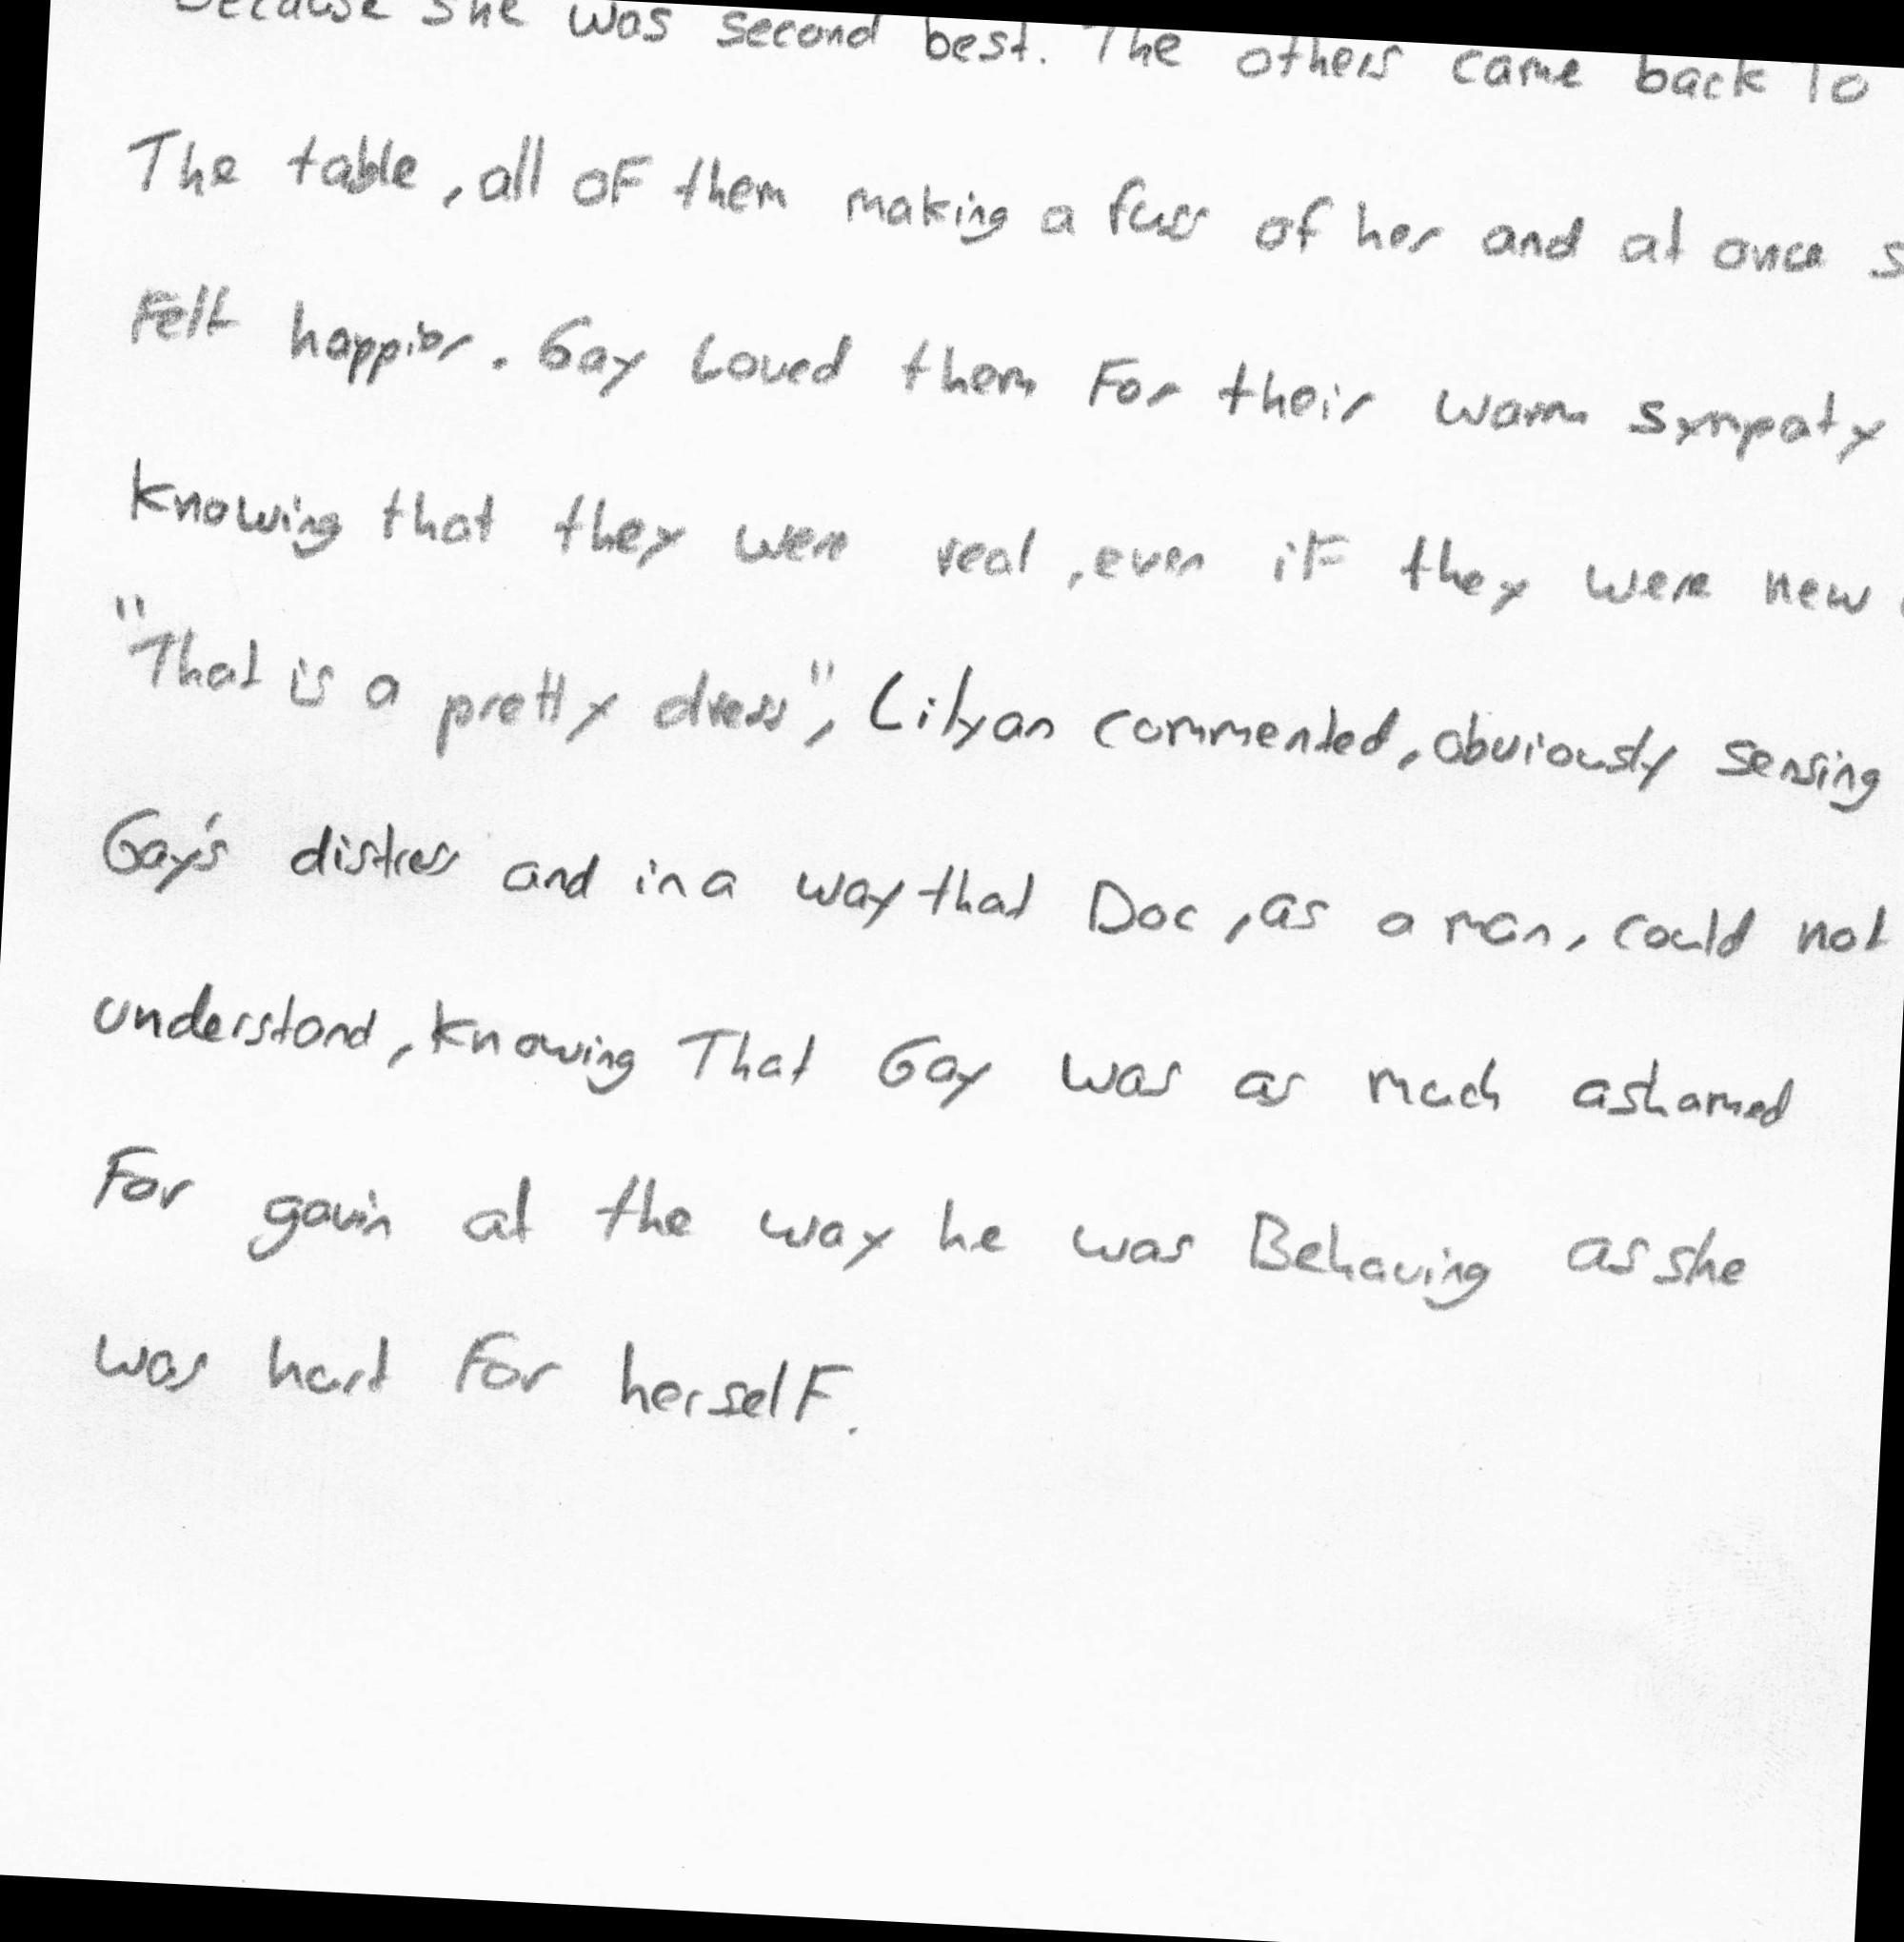 because she was second best. The others came back To
The table, all oF them making a fuss of her and at once
Felt happier. Gay Loved them For their warm sympaty
knowing that they were real, even iF they were new
"That is a pretty dress", Lilyan commented, obviously sensing
Gay's distress and in a way that Doc, as a man, could not
understand, knowing That Gay was as much ashamed
For gavin at the way he was Behaving as she
was hurt For herselF.